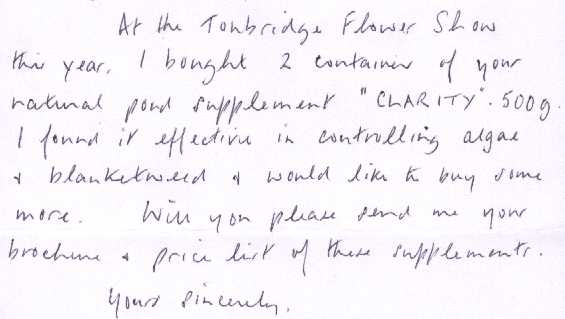 At the Tonbridge Flower Show
this year, I bought 2 container of your
natural pond supplement "CLARITY". 500g.
I found it effective in controlling algae
& blanketweed & would like to buy some
more. Will you please send me your
brochure & price list of these supplements.
Yours sincerely,